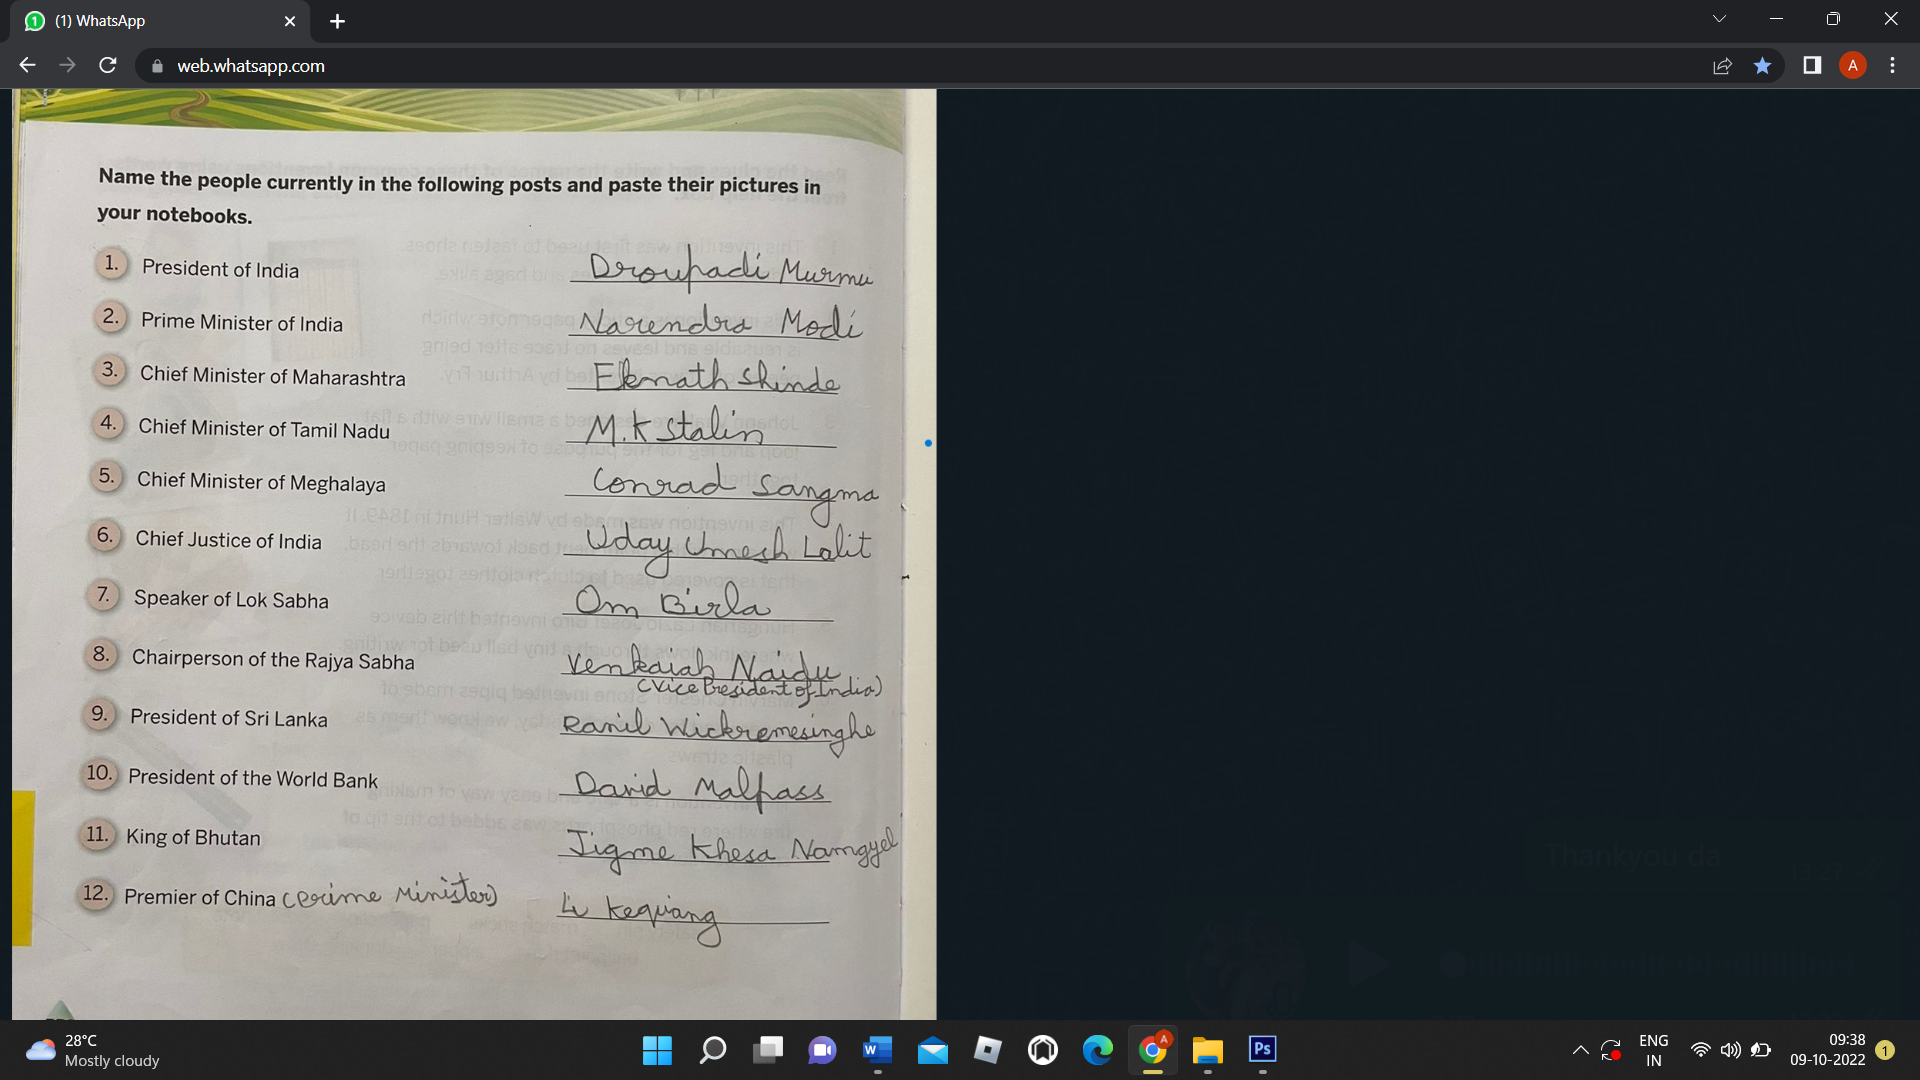 (1) WhatsApp
web.whatsapp.com
A
Name the people currently in the following posts and paste their pictures in
your notebooks.
1. President of India Droupadi Murmu
2. Prime Minister of India Narendra Modi
3. Chief Minister of Maharashtra Eknath Shinde
4. Chief Minister of Tamil Nadu M.K Stalin
5. Chief Minister of Meghalaya Conrad Sangma
6. Chief Justice of India Uday Umesh Lalit
7. Speaker of Lok Sabha Om Birla
8. Chairperson of the Rajya Sabha Venkaiah Naidu
(Vice President of India)
9. President of Sri Lanka Ranil Wickremesinghe
10. President of the World Bank David Malpass
11. King of Bhutan Jigme Khesa Namgyel
12. Premier of China (Prime Minister) Li Keqiang
Thankyou da
13:27
28°C
Mostly cloudy
ENG
IN
09:38
09-10-2022
1